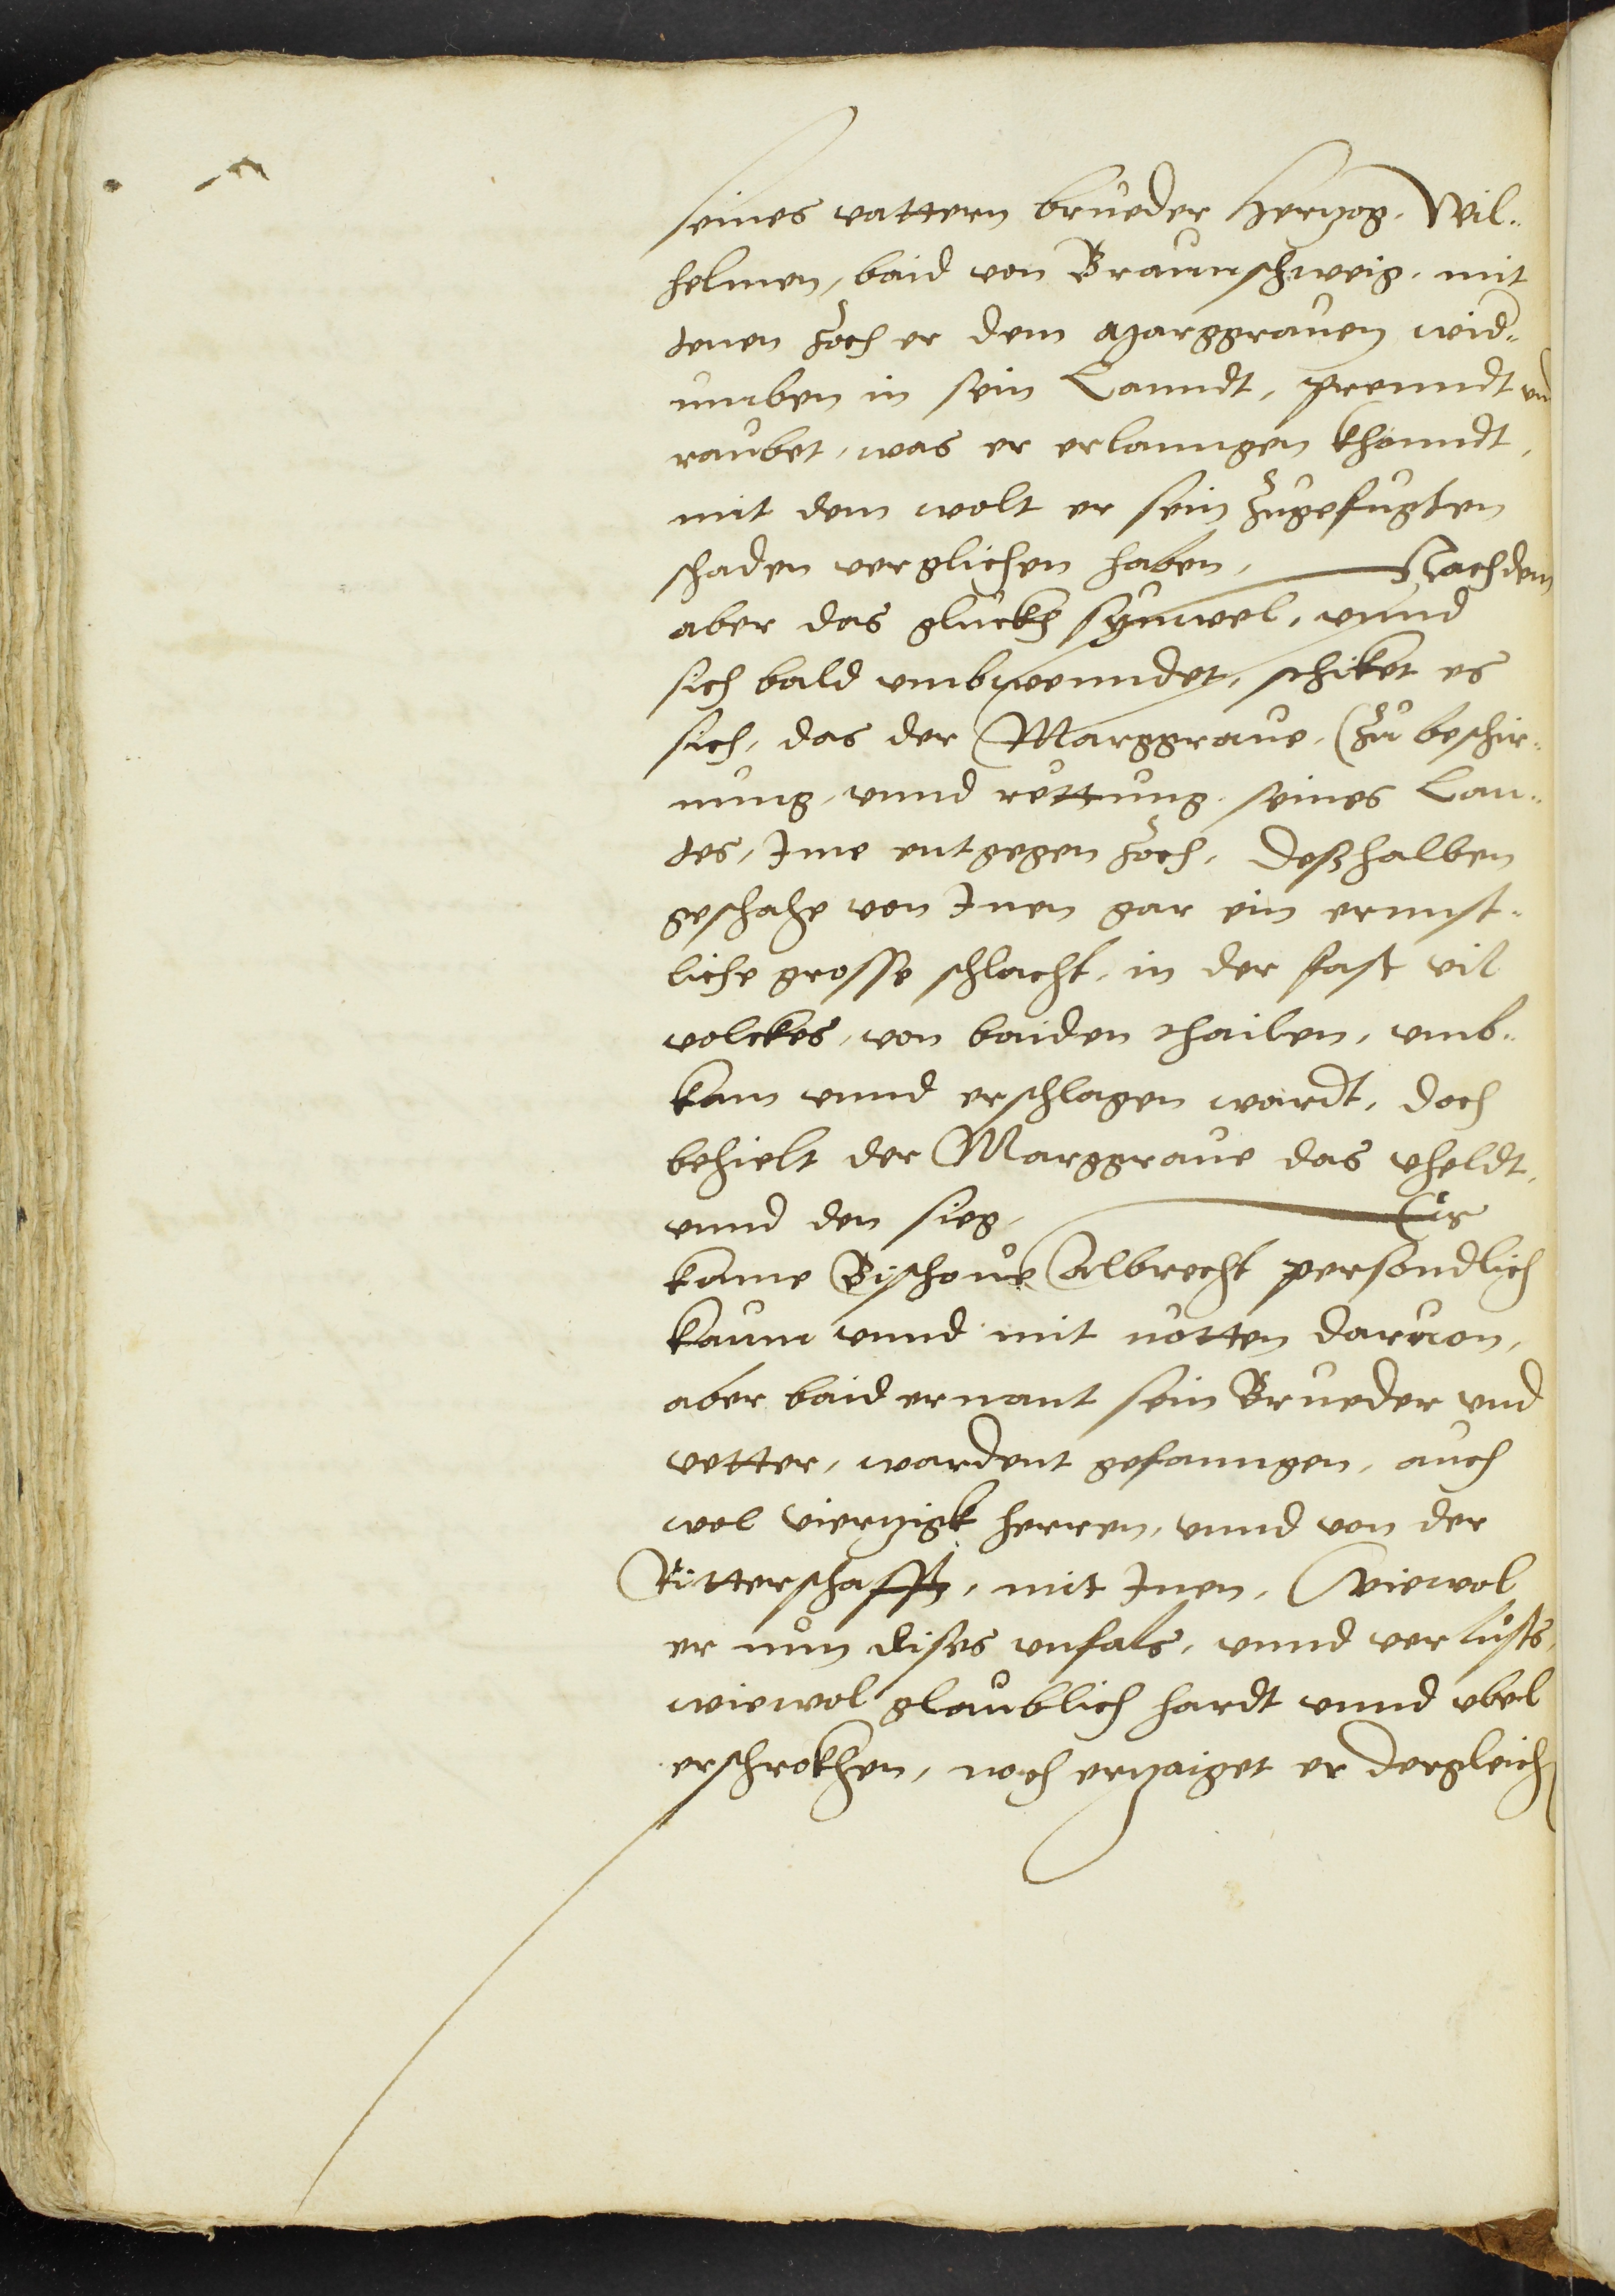 seines vattern brueder Hertzog, Wil„
helmen, baid von Braunschweig, mit
denen zoch er dem Marggrauen wid„
umben in sein Lanndt, prenndt vnd
raubet, was er erlanngen khonndt,
mit dem wolt er sein zugefugten
schaden verglichen haben, Nachdem
aber das gluckh synwel, vnnd
sich bald vmbwenndet, schiket es
sich, das der Marggraue, (zu beschir„
mung, vnnd rettung seines Lan„
des, Ime entgegen zoch, deßhalben
geschahe von Inen gar ein ernnst„
liche grosse schlacht, in der fast vil
volckes, von baiden thailen, vmb„
kam vnnd erschlagen wardt, doch
behielt der Marggraue das vheldt,
vnnd den sieg, Er
kame Bischoue Albrecht persondlich
kaum vnnd mit notten daruon,
aber baid ernant sein Brueder vnd
vetter, wardent gefanngen, auch
wol viertzigk herren, vnnd von der
Ritterschafft, mit Inen, Wiewol
er nun dises vnfals, vnnd verlusts,
wiewol glaublich hardt vnnd vbel
erschrokhen, noch ertzaiget er dergleich